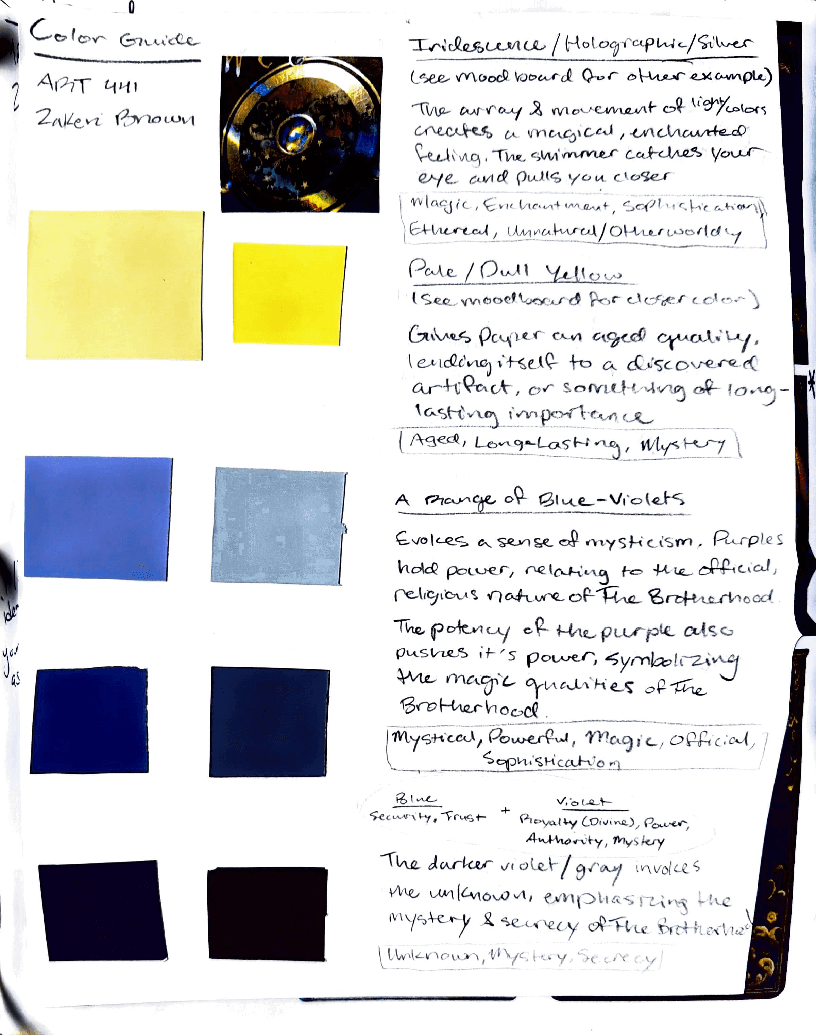 Color Guide
ART 441
Zakeri Brown
Iridescence/Holographic/Silver
(see moodboard for other example)
The array & movement of light/colors
creates a magical, enchanted
feeling. The shimmer catches your
eye and pulls you closer
Magic, Enchantment, Sophistication,
Ethereal, Unnatural/Otherworldly
Pale/Dull Yellow
(See moodboard for closer color)
Gives Paper an aged quality,
lending itself to a discovered
artifact, or something of long-
lasting importance
Aged, Long-Lasting, Mystery
A Range of Blue-Violets
Evokes a sense of mysticism. Purples
hold power, relating to the official,
religious nature of The Brotherhood.
The potency of the purple also
pushes it's power, symbolizing
the magic qualities of The
Brotherhood.
Mystical, Powerful, Magic, Official,
Sophistication
Blue
Security, Trust
+
Violet
Royalty (Divine), Power,
Authority, Mystery
The darker violet/gray invokes
the unknown, emphasizing the
mystery & secrecy of The Brotherhood
Unknown, Mystery, Secrecy